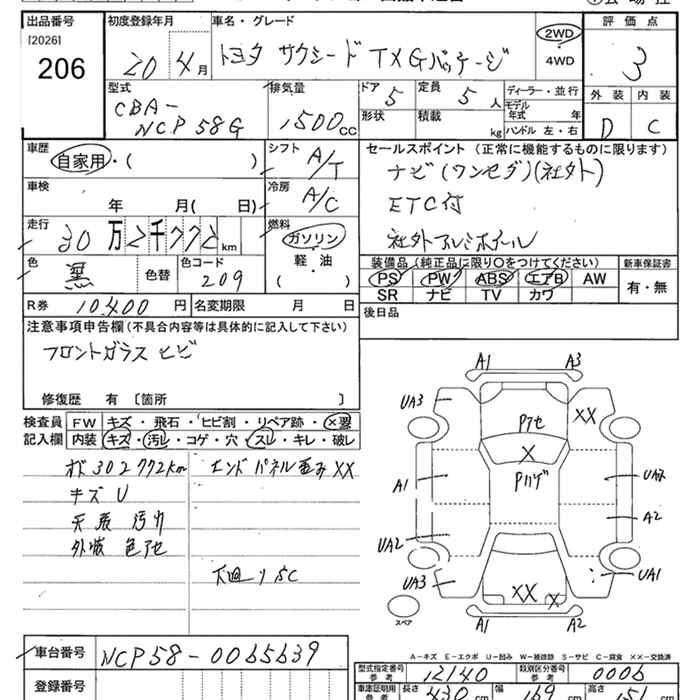 出品番号
[2026]
206
初度登録年月
20 4 月
車名・グレード
トヨタ サクシード TX Gパッケージ
2WD
4WD
評価点
3
型式
CBA-
NCP58G
排気量
1500 CC
ドア
5
形状
定員
5 人
積載
kg
ディーラー・並行
モデル
年式 年
ハンドル 左・右
外装
D
内装
C
車歴
自家用・( )
シフト
A/T
車検
年 月( 日)
冷房
A/C
セールスポイント (正常に機能するものに限ります)
ナビ(ワンセグ)(社外)
ETC付
社外アルミホイール
走行
30万2千772 km
燃料
ガソリン
軽・油
( )
色
黒
色替
色コード
209
装備品(純正品に限り○をつけてください)
PS PW ABS エアB AW
SR ナビ TV カワ
新車保証書
有・無
R券 10400 円
名変期限 月 日
後日品
注意事項申告欄(不具合内容等は具体的に記入して下さい)
フロントガラス ヒビ
修復歴 有〔箇所 〕
検査員
記入欄
FW キズ・飛石・ヒビ割・リペア跡・×要
内装 キズ・汚レ・コゲ・穴・スレ・キレ・破レ
オド302772km
キズU
天張 汚れ
エンドパネル歪みXX
下廻りSC
A1 A3
UA3
XX
Pアセ
X
A1
A2
UA2
UA3
UA1
XX X
A1 A2
スペア
A-キズ E-エクボ U-凹み W-補修跡 S-サビ C-腐食 XX-交換済
車台番号 NCP58-0065639
登録番号
型式指定番号
参考
12140
類別区分番号
参考
0006
車庫証明用
参考
長さ 430 cm
幅 169 cm
高さ 151 cm